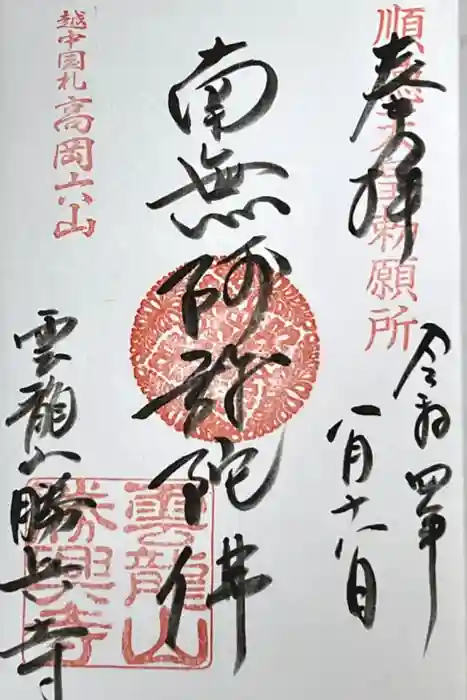 奉拝
順徳天皇勅願所
令和四年
八月十八日
南無阿弥陀佛
越中国札
高岡六山
雲龍山勝興寺
雲龍山
勝興寺